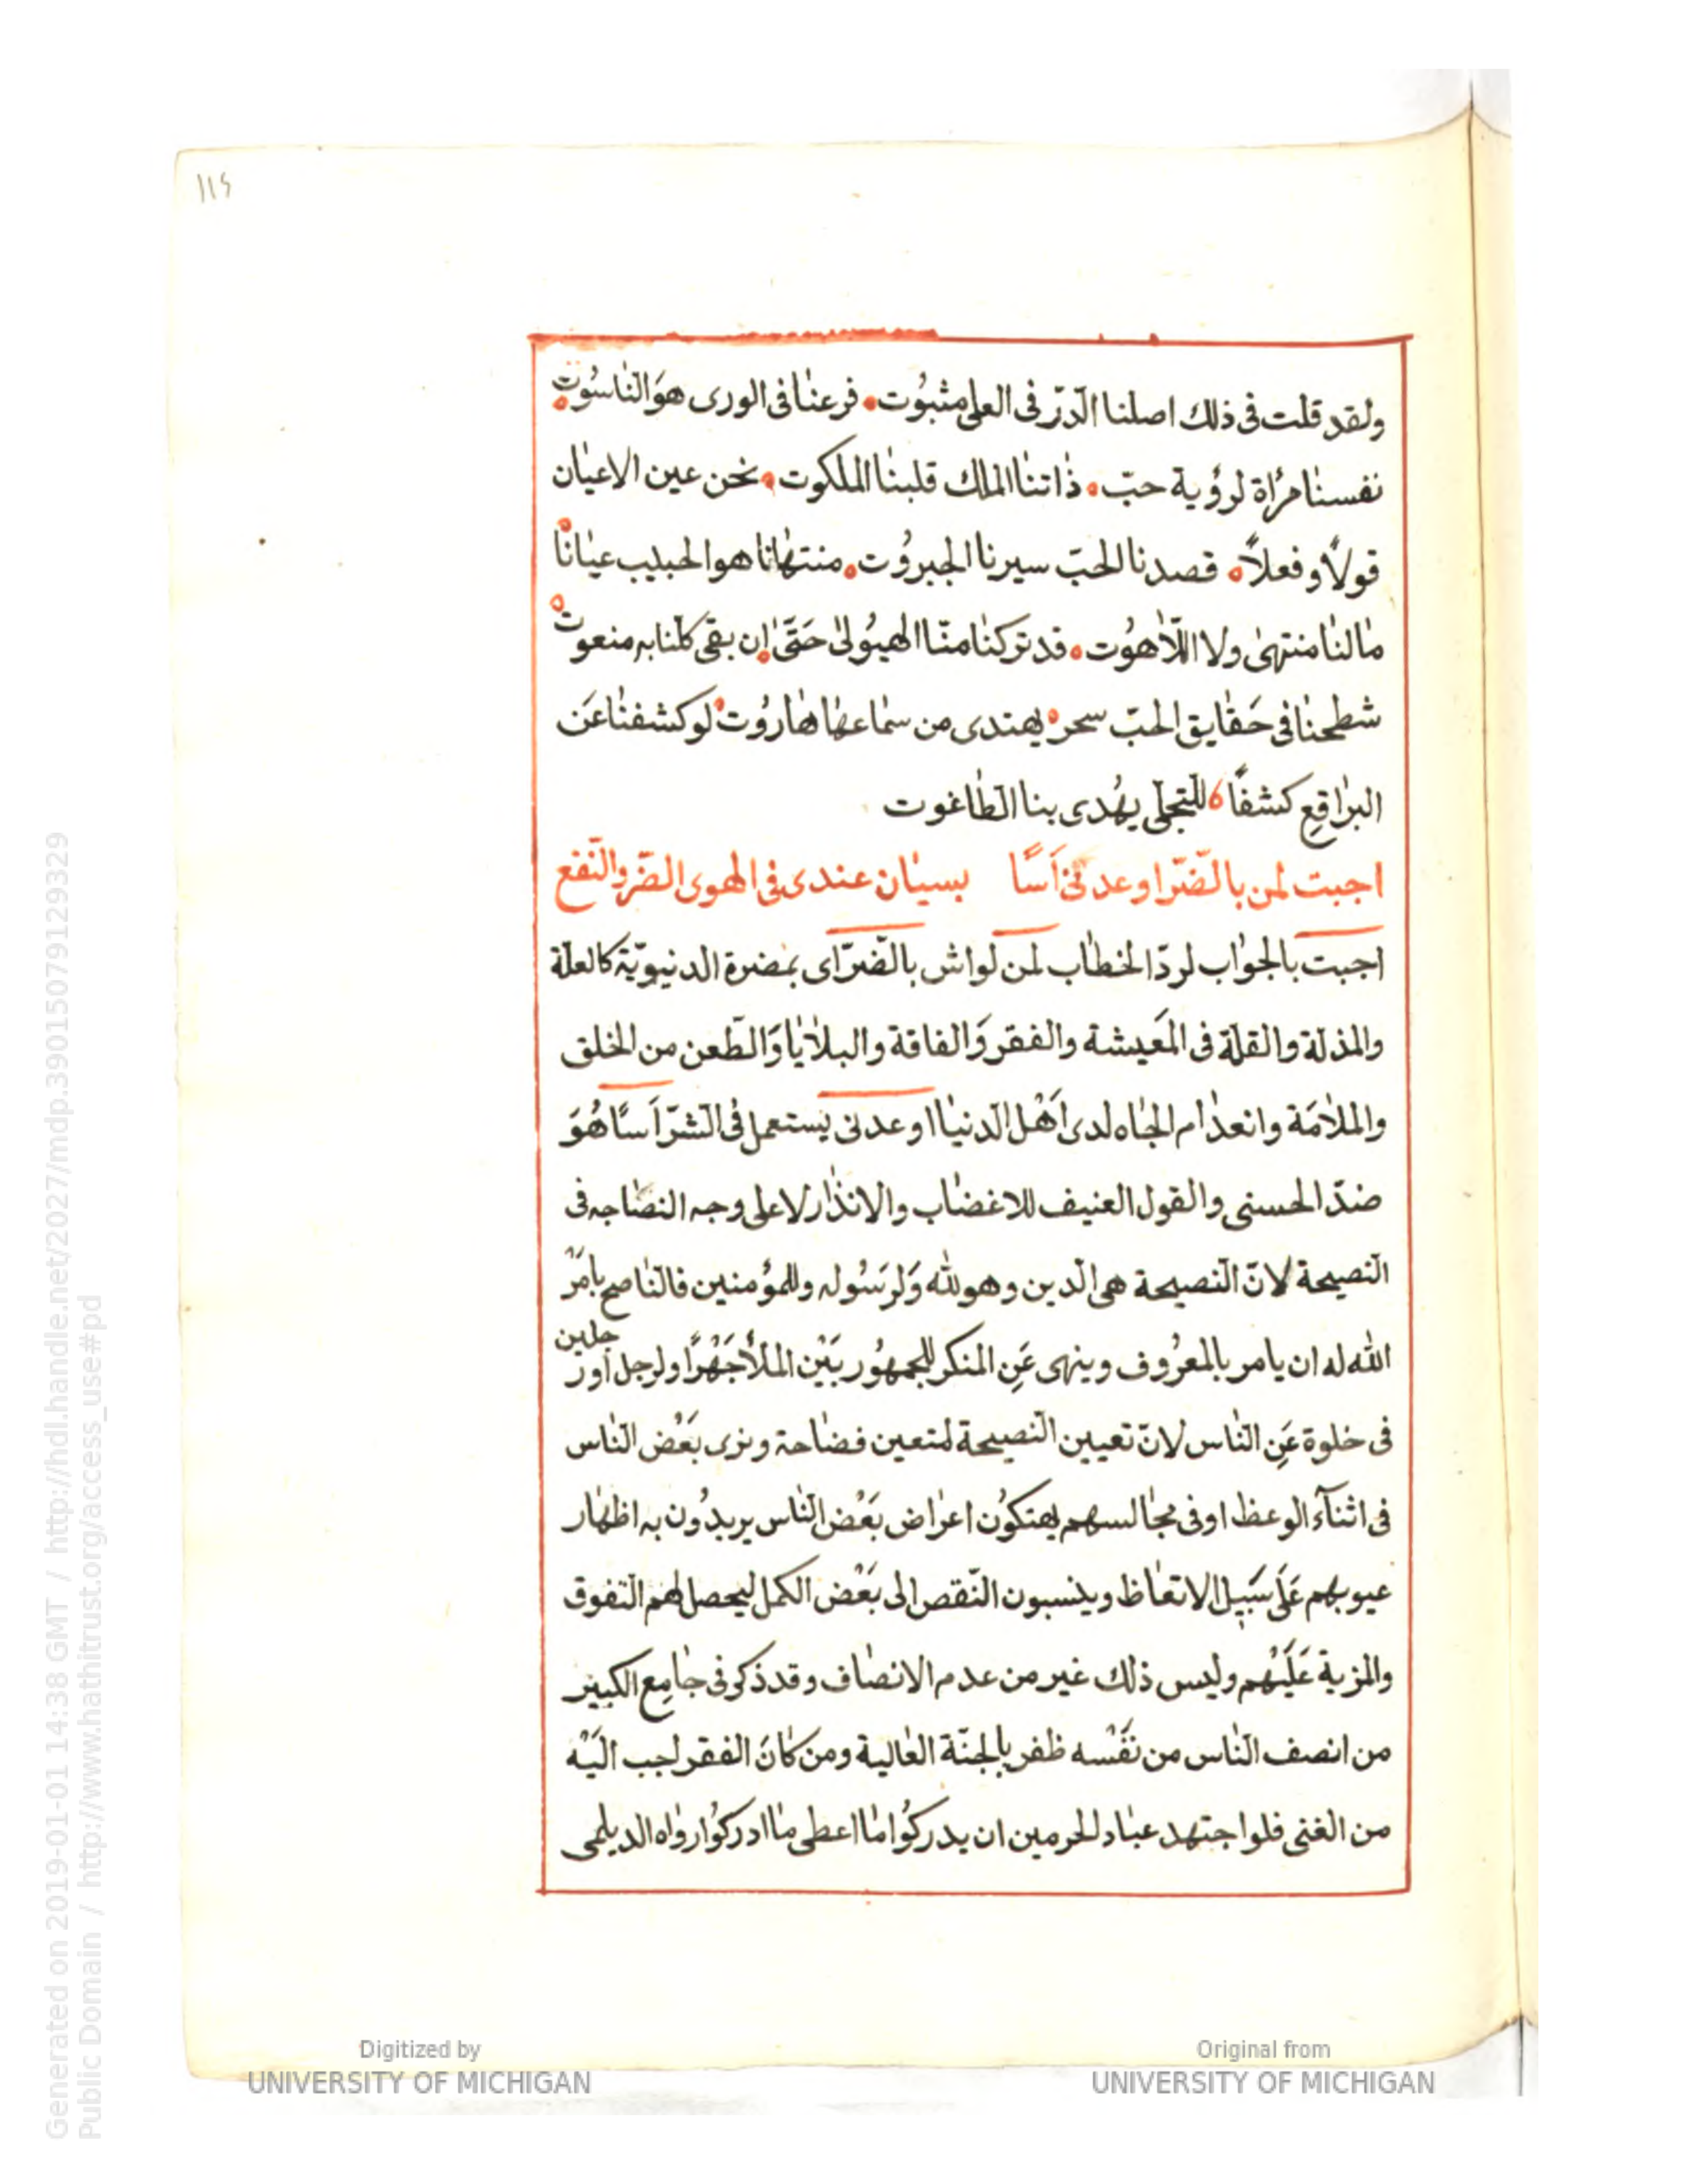 ١١٥
ولقد قلت فى ذلك اصلنا الدّرّ فى العلى مثبوُت فرعنا فى الورى هوَ النّاسُوت
نفسنا مرأة لرؤية حبّ ذاتنا الملك قلبنا الملكوت نحن عين الاعيان
قولاً وفعلاً قصدنا الحبّ سيرنا الجبروُت منتهانا هو الحبيب عيانا
مالنا منتهى ولا اللّاهوُت قد تركنا منّا الهيوُلى حَتّى ان بقى كلنا به منعوت
شطحنا فى حَقايق الحبّ سحر يهتدى من سماعها هاروُت لو كشفنا عَن
البراقِع كشفًا للتجلى يهُدى بنا الطاغوت
اجبت لمن بالضّرّ اوعدنى اَسًا بسيان عندى فى الهوى الضّر والنّفع
اجبت بالجواب لردّ الخطاب لمن لواش بالضرّ اى بمضرة الدنيويّة كالعلّة
والمذلة والقلّة فى المَعيشة والفقر وَالفاقة والبلايا وَالطّعن من الخلق
والملامَة وانعدام الجاه لدى اَهْل الدنيا اوعدنى يستعمل فى الشرّ اَسًا هُوَ
ضدّ الحسنى والقول العنيف للاغضاب والانذار لا على وجه النصاجه فى
النصيحة لانّ النصيحة هى الدين وهو لله وَلرَسُوله وللمؤمنين فالناصح بامَرْ
الله له ان يامر بالمعرُوف وينهى عَنِ المنكر للجمهُور بَيْن الملأ جَهْرًا ولرجل اور
جلين
فى خلوة عَنِ النّاس لانّ تعيين النّصيحة لمتعين فضاحة ونرى بَعْض النّاس
فى اثنآء الوعظ او فى مجالسهم يهتكوُن اعراض بَعْض النّاس يريدُون به اظهار
عيوبهم عَلى سَبيل الاتعاظ وينسبون النّقص الى بَعْض الكمل ليحصل لهم التفوق
والمزية عَلَيْهم وليس ذلك غير من عدم الانصاف وقد ذكر فى جامع الكبير
من انصف النّاس من نفَسْه ظفر بالجنّة العالية ومن كانَ الفقر احب اليَْه
من الغنى فلو اجتهد عباد الحرمين ان يدركوُا ما اعطى ما ادركوُا رواه الديلمى
Digitized by
UNIVERSITY OF MICHIGAN
Original from
UNIVERSITY OF MICHIGAN
Generated on 2019-01-01 14:38 GMT / http://hdl.handle.net/2027/mdp.39015079129329
Public Domain / http://www.hathitrust.org/access_use#pd